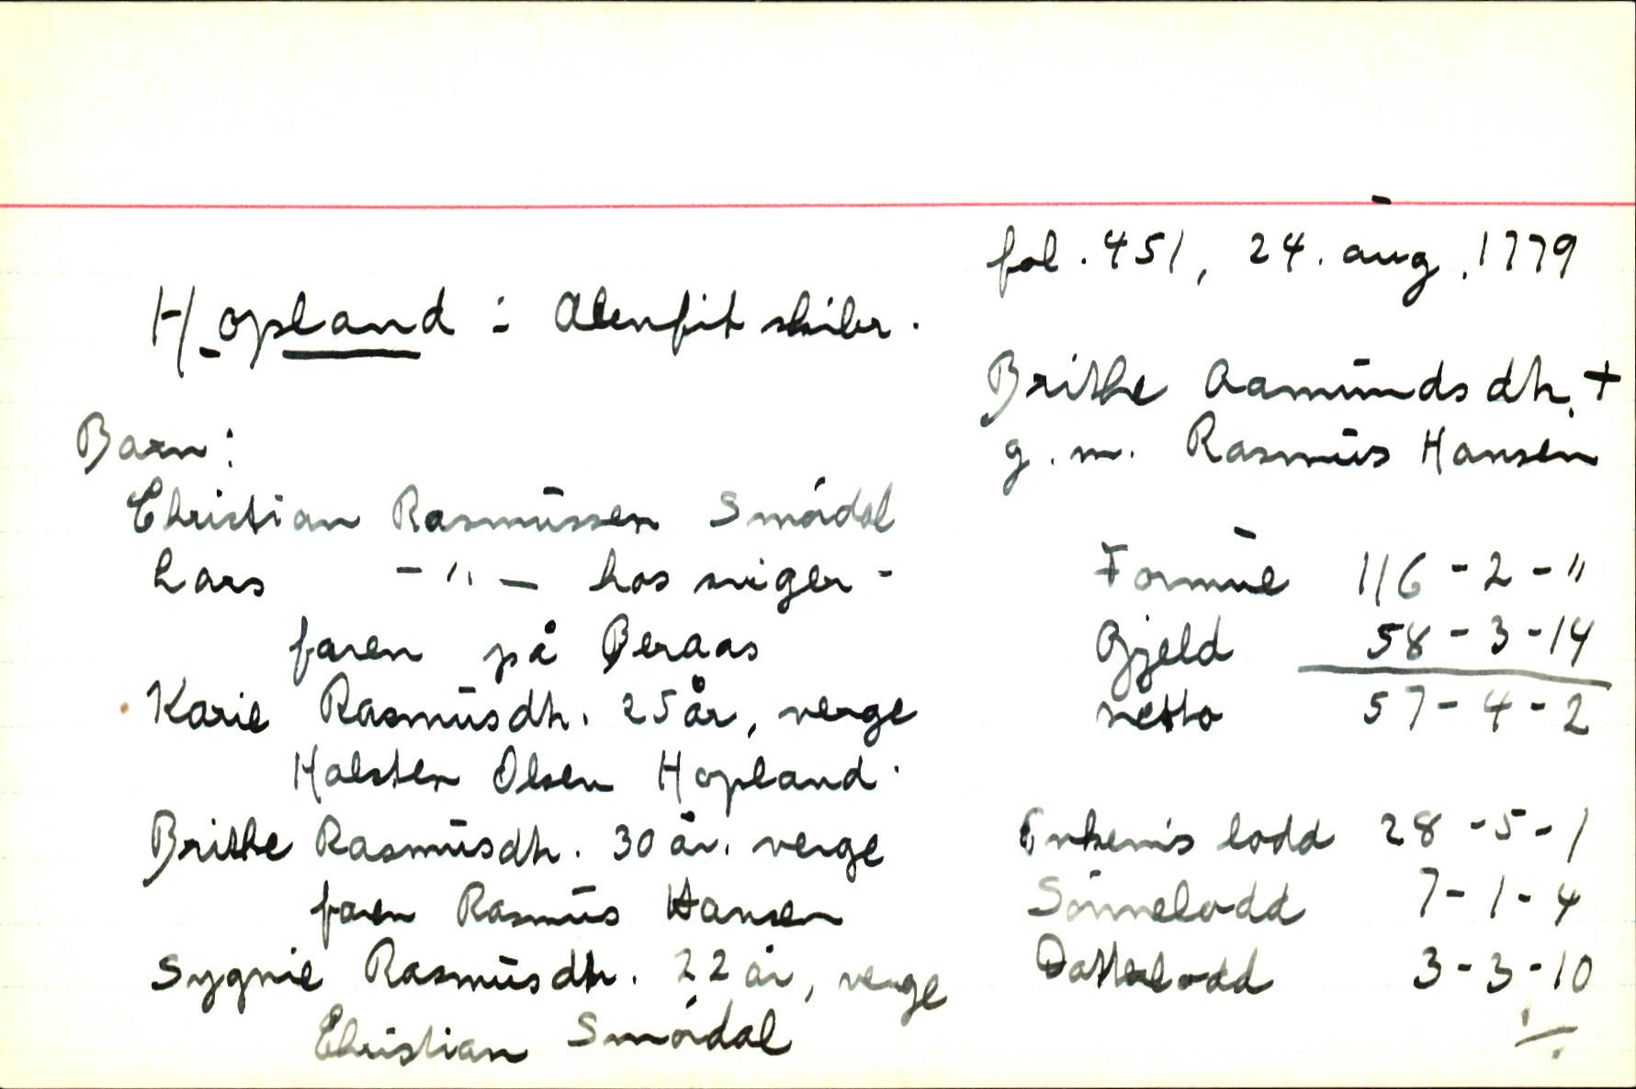 fol. 451, 24. aug. 1779
Hopland : Alenfit skibr.
Brithe Aamundsdh. +
g. m. Rasmus Hansen
Barn:
Christian Rasmussen Smørdal
Lars -"- hos sviger-
faren på Beraas
Karie Rasmusdh. 25 år, verge
Halsten Olsen Hopland.
Brithe Rasmusdh. 30 år. verge
faren Rasmus Hansen
Sygnie Rasmusdh. 22 år, verge
Christian Smørdal
Formue 116 - 2 - "
Gjeld 58 - 3 - 14
netto 57 - 4 - 2
Enkem's lodd 28 - 5 - 1
Sønnelodd 7 - 1 - 4
Datterlodd 3 - 3 - 10